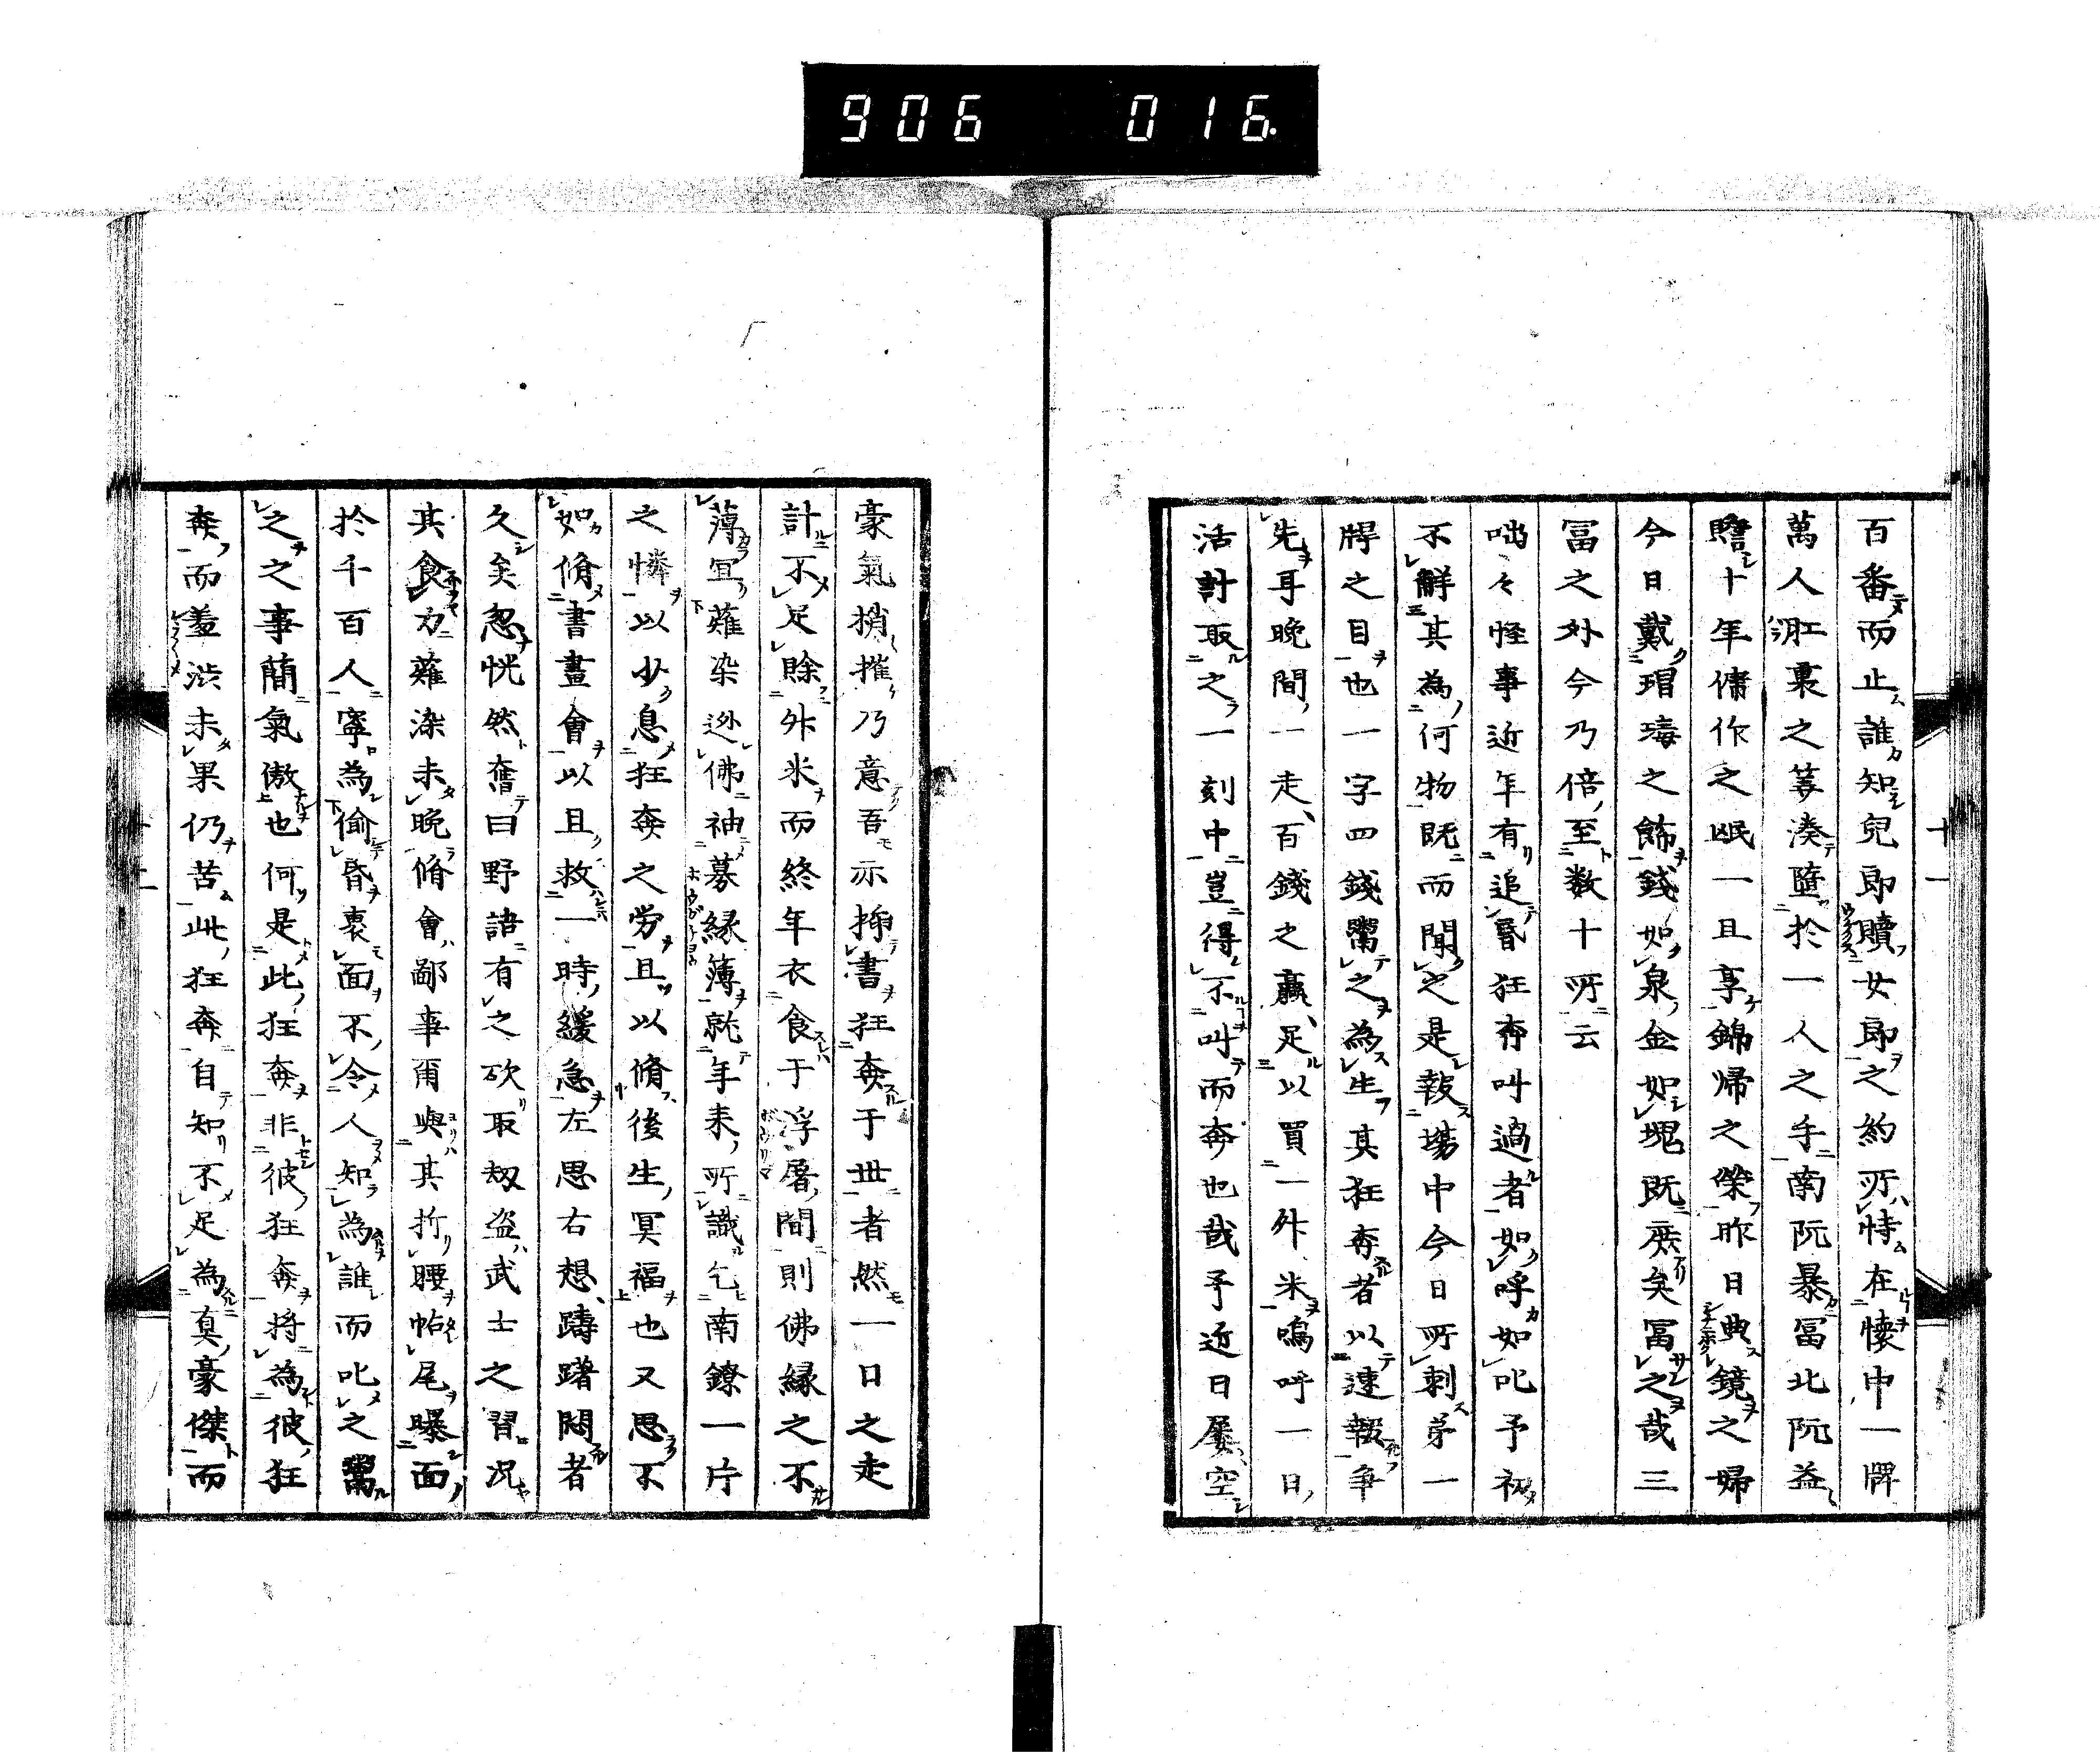 906 016.
百番而止誰知兒即贖女郎之約所恃在懐中一牌
萬人肛裏之筭湊墮於一人之手南阮暴冨北阮益
十年傭作之氓一旦享錦帰之榮昨日典鏡之婦
今日戴瑇瑁之餙錢如泉金如塊既庶矣冨之哉三
冨之外今乃倍至数十所云
咄々怪事近年有追昏狂奔叫過者如呼如叱予初
不解其為何物既而聞之是報塲中今日所刺第一
牌之目也一字四錢鬻之為生其狂奔者以速報争
先耳晩間一走百錢之贏足以買一舛米嗚呼一日
活計取之一刻中豈得不叫而奔也哉予近日屡空
十一
豪氣梢摧乃意吾亦挿書狂奔于世者然一日之走
計不足賒舛米而終年衣食于浮屠間則佛縁之不
薄冝薙染逃佛神募縁簿就年来所識乞南鐐一片
之憐以少息狂奔之労且以脩後生冥福也又思不
如脩書畫會以且救一時緩急左思右想躊躇悶者
久矣忽恍然奮曰野語有之砍取刼盗武士之習况
其食力薙染未晩脩會鄙事爾與其折腰帖尾曝面
於千百人寧為偷昏裹面不令人知為誰而叱之鬻
之之事簡氣傲也何是此狂奔非彼狂奔将為彼狂
奔而羞渋未果仍苦此狂奔自知不足為真豪傑而